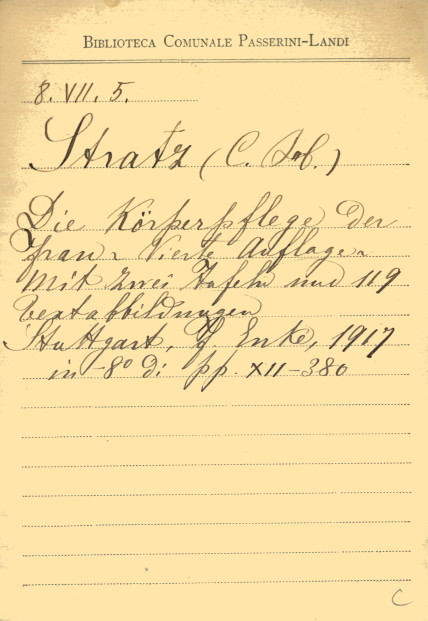 BIBLIOTECA COMUNALE PASSERINI-LANDI
8. VII. 5.
Stratz (C. )
Die Körperpflege der
Frau. Vierte Auflage.
Mit zwei Tafeln und 119
Textabbildungen
Stuttgart, Enke, 1917
in-8° di pp. XII-380
C